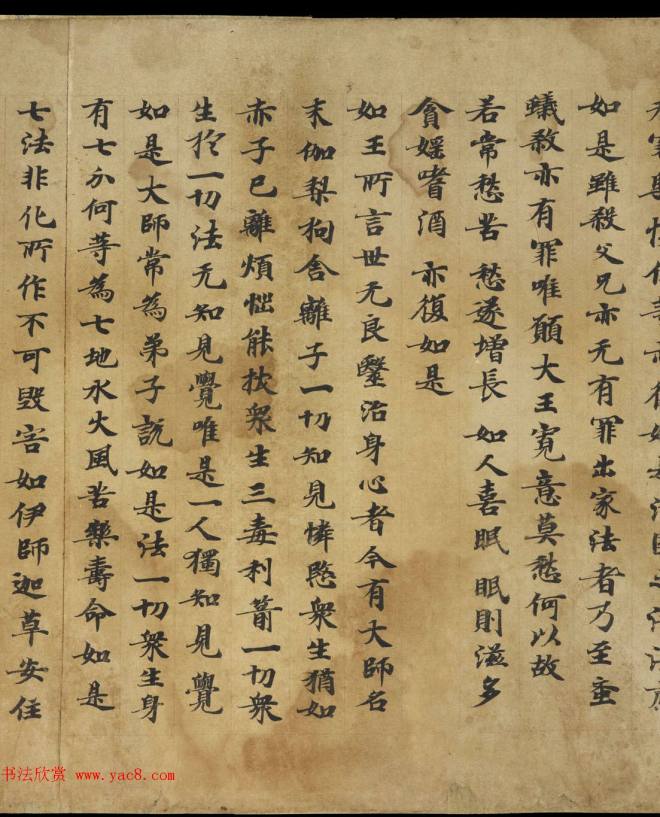 如是雖殺父兄亦无有罪出家法者乃至蚉
蟻殺亦有罪唯願大王寬意莫愁何以故
若常愁苦 愁遂增長 如人喜眠 眠則滋多
貪婬嗜酒 亦復如是
如王所言世无良毉治身心者今有大師名
末伽梨狗舍離子一切知見憐愍衆生猶如
赤子已離煩惱能拔衆生三毒利箭一切衆
生於一切法无知見覺唯是一人獨知見覺
如是大師常為弟子說如是法一切衆生身
有七分何等為七地水火風苦樂壽命如是
七法非化所作不可毀害如伊師迦草安住
书法欣赏 www.yac8.com